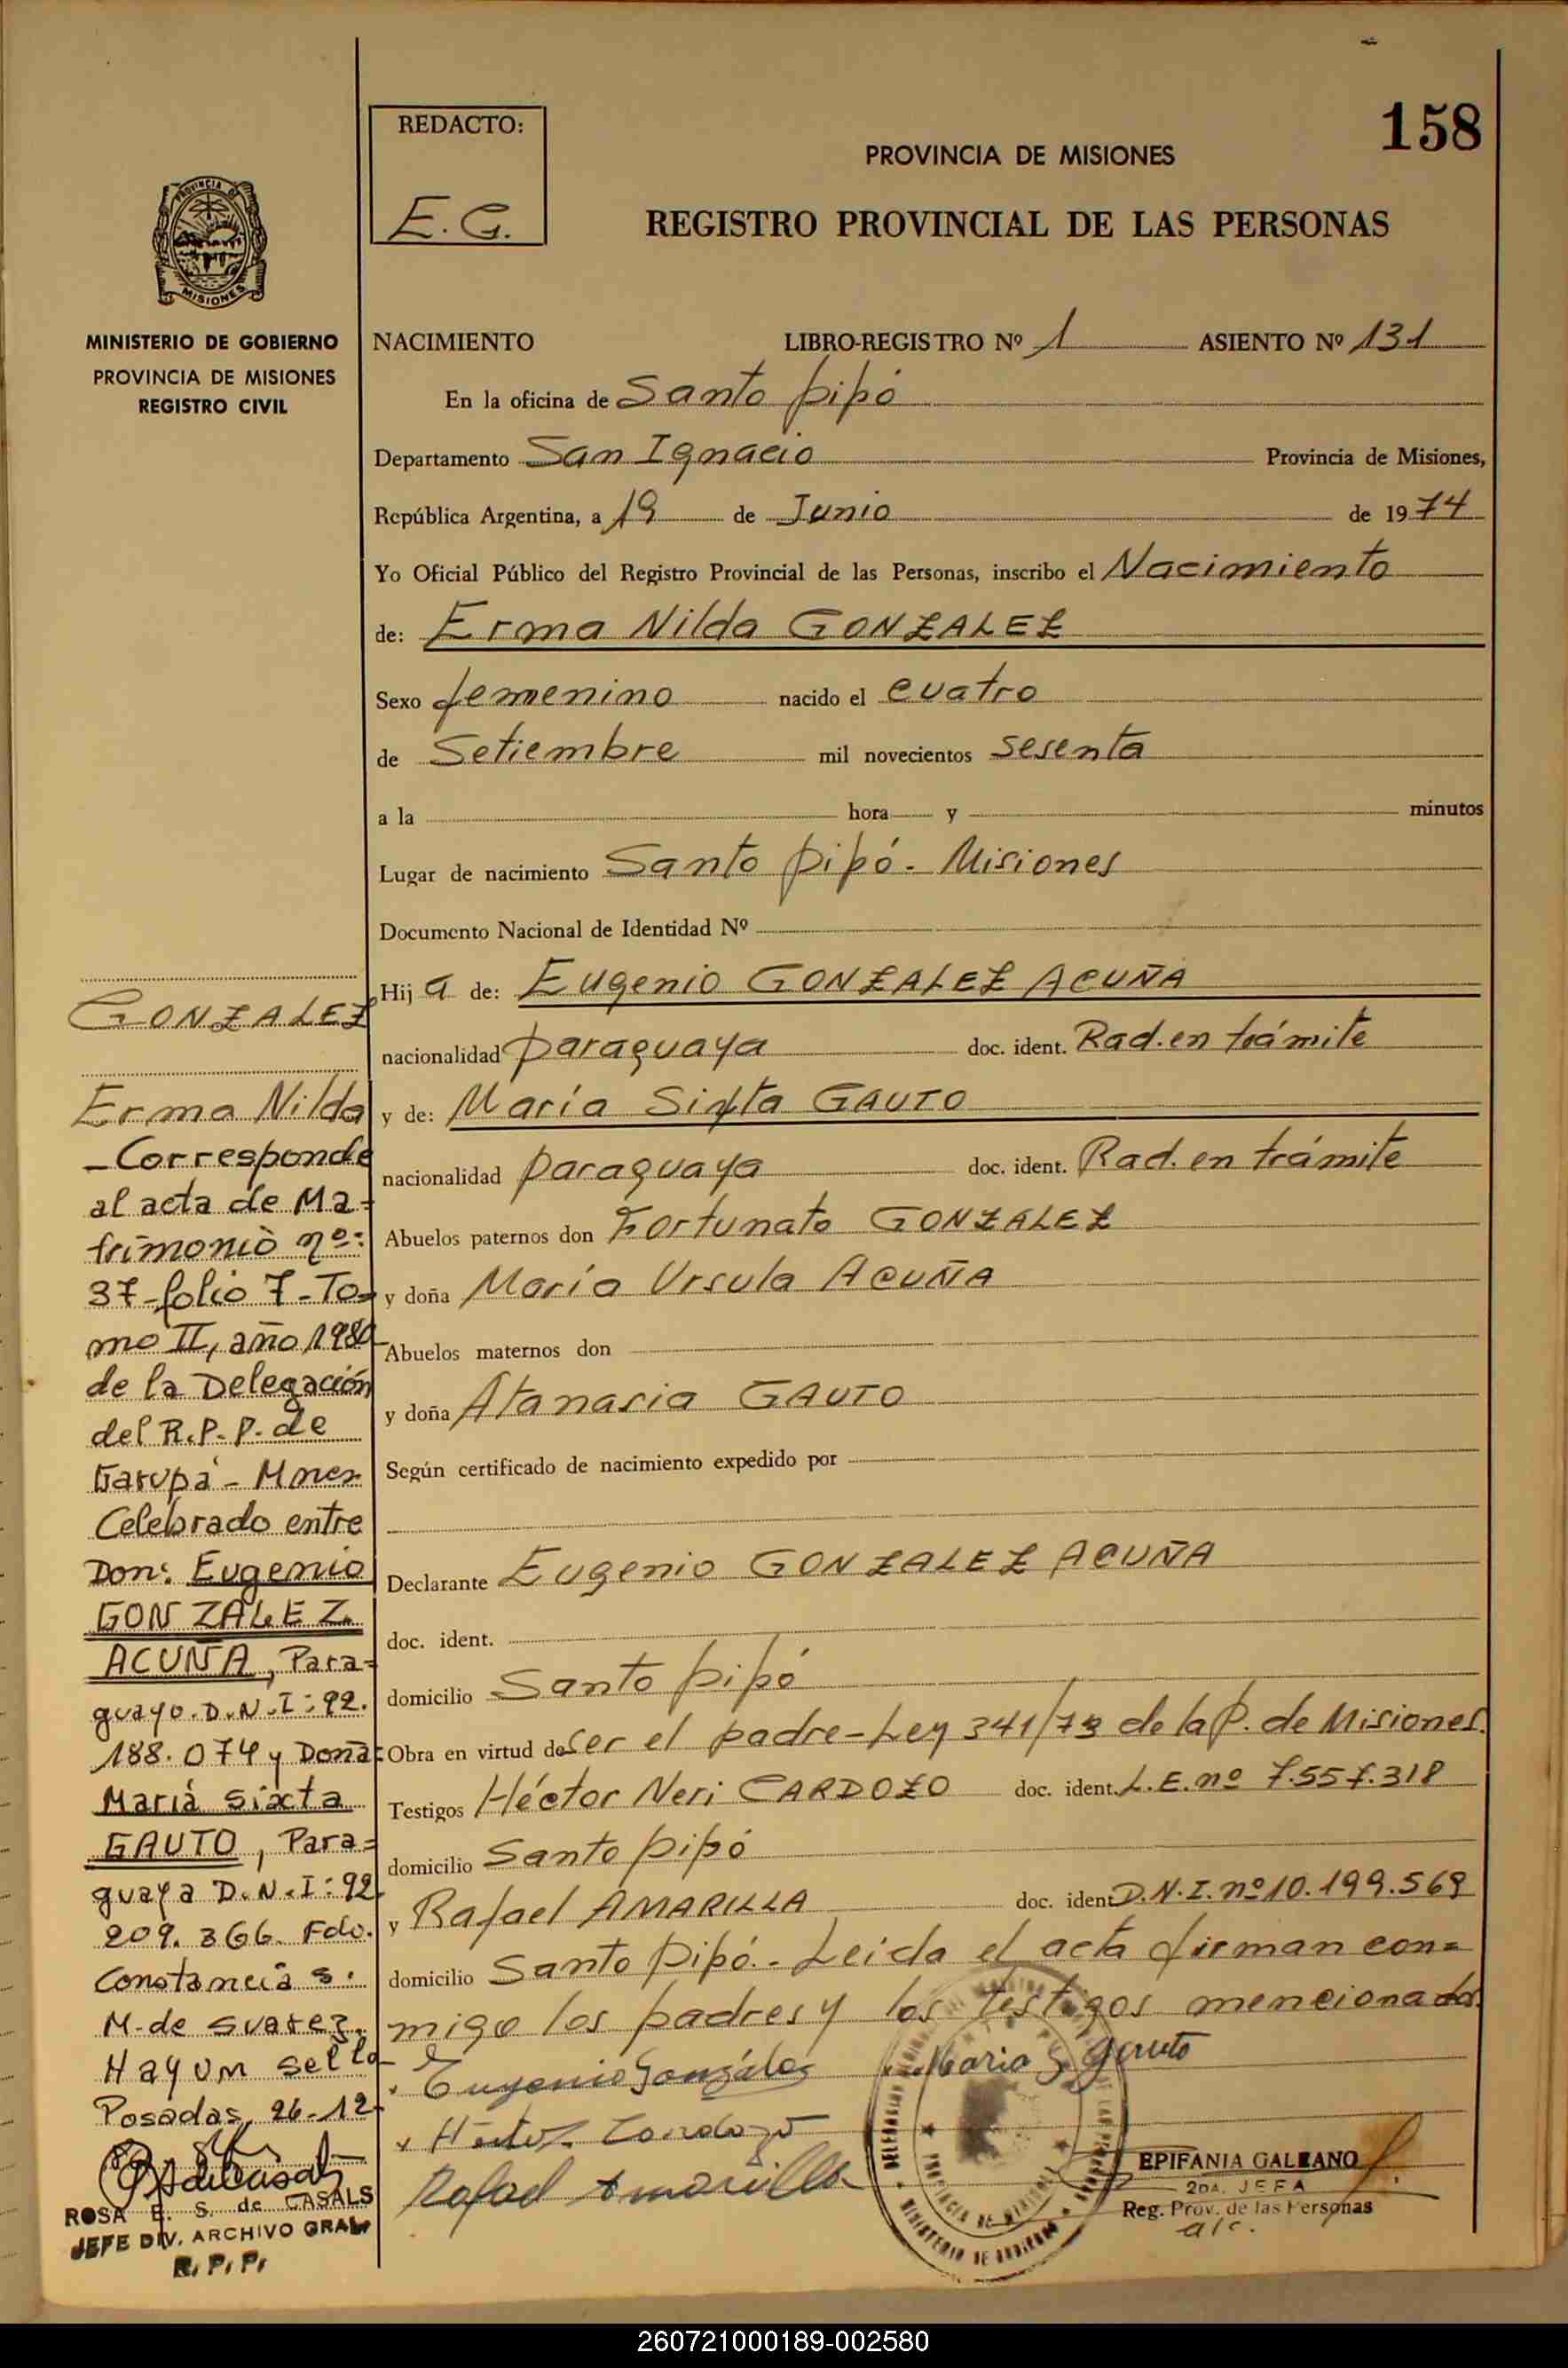 158
REDACTO:
E. G.
PROVINCIA DE MISIONES
REGISTRO PROVINCIAL DE LAS PERSONAS
PROVINCIA DE
MISIONES
MINISTERIO DE GOBIERNO
PROVINCIA DE MISIONES
REGISTRO CIVIL
NACIMIENTO LIBRO-REGISTRO Nº 1 ASIENTO Nº 131
En la oficina de Santo pipó
Departamento San Ignacio Provincia de Misiones,
República Argentina, a 19 de Junio de 1974
Yo Oficial Público del Registro Provincial de las Personas, inscribo el Nacimiento
de: Erma Nilda GONZALEZ
Sexo femenino nacido el cuatro
de Setiembre mil novecientos sesenta
a la hora y minutos
Lugar de nacimiento Santo pipó - Misiones
Documento Nacional de Identidad Nº
Hija de: Eugenio GONZALEZ ACUÑA
nacionalidad paraguaya doc. ident. Rad. en trámite
y de: María Sixta GAUTO
nacionalidad paraguaya doc. ident. Rad. en trámite
Abuelos paternos don Fortunato GONZALEZ
y doña María Ursula ACUÑA
Abuelos maternos don
y doña Atanasia GAUTO
Según certificado de nacimiento expedido por
Declarante Eugenio GONZALEZ ACUÑA
doc. ident.
domicilio Santo pipó
Obra en virtud de ser el padre - Ley 341/73 de la P. de Misiones.
Testigos Héctor Neri CARDOZO doc. ident. L.E. nº 7.557.318
domicilio Santo pipó
y Rafael AMARILLA doc. ident D.N.I. nº 10.199.569
domicilio Santo pipó. - Leida el acta firman con=
migo los padres y los testigos mencionados.
Eugenio González Maria S Gauto
Héctor Cardozo
Rafael Amarilla
EPIFANIA GALEANO
2DA. JEFA
Reg. Prov. de las Personas
a/c.
GONZALEZ
Erma Nilda
- Corresponde
al acta de Ma=
trimonio nº:
37 - folio 7 - To=
mo II, año 1980
de la Delegación
del R.P.P. de
Garupá - Mnes
Celebrado entre
Don: Eugenio
GONZALEZ
ACUÑA, Para=
guayo. D.N.I: 92.
188.074 y Doña:
María Sixta
GAUTO, Para=
guaya D.N.I: 92.
209.366. Fdo.
Constancia S.
M. de Suarez.
Hay un sello
Posadas, 26-12-
ROSA E. S. de CASALS
JEFE DIV. ARCHIVO GRAL.
R. P. P.
260721000189-002580